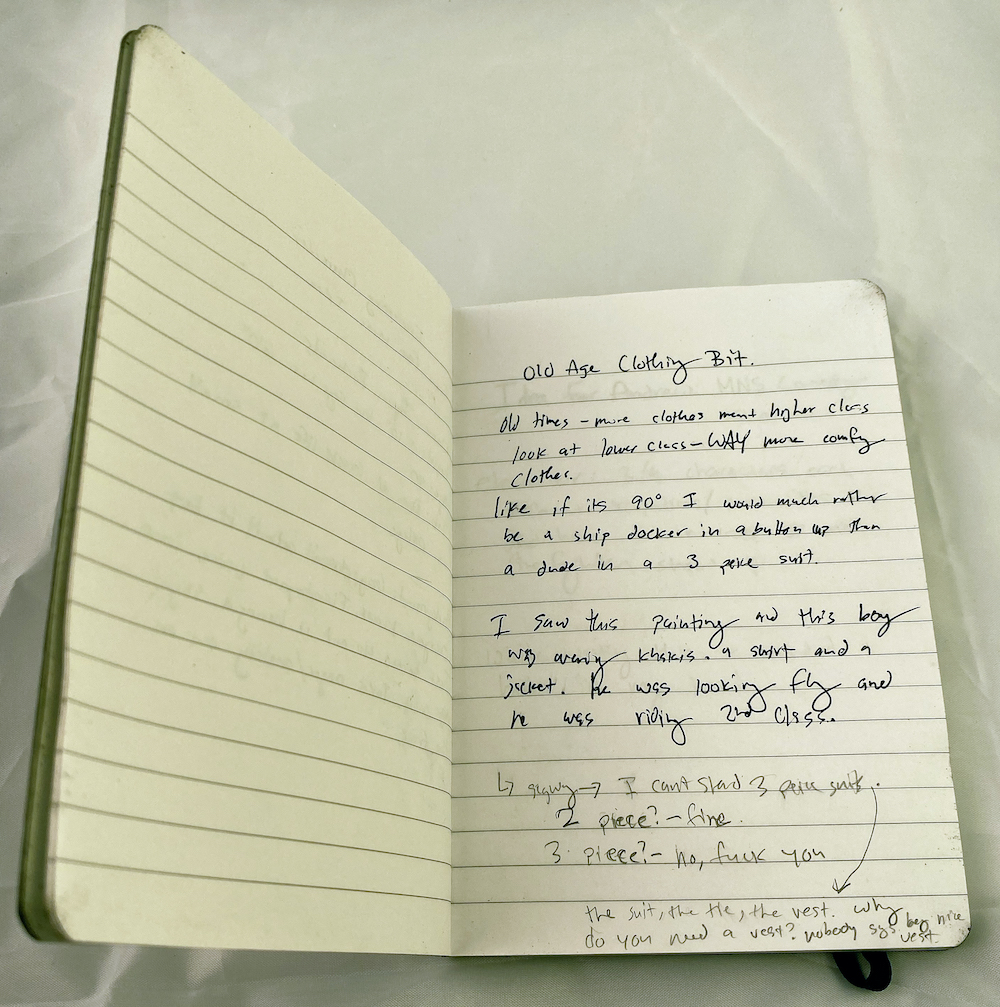 Old Age Clothing Bit.
Old times - more clothes ment higher class
look at lower class - WAY more comfy
clothes.
like if its 90° I would much rather
be a ship docker in a button up than
a dude in a 3 peice suit.
I saw this painting and this boy
was wearing khakis. a shirt and a
jacket. he was looking fly and
he was riding 2nd class.
↳ segwy → I cant stand 3 peice suits.
2 piece? - fine.
3 piece? - no, fuck you
the suit, the tie, the vest. why
do you need a vest? nobody sys hey nice
vest.